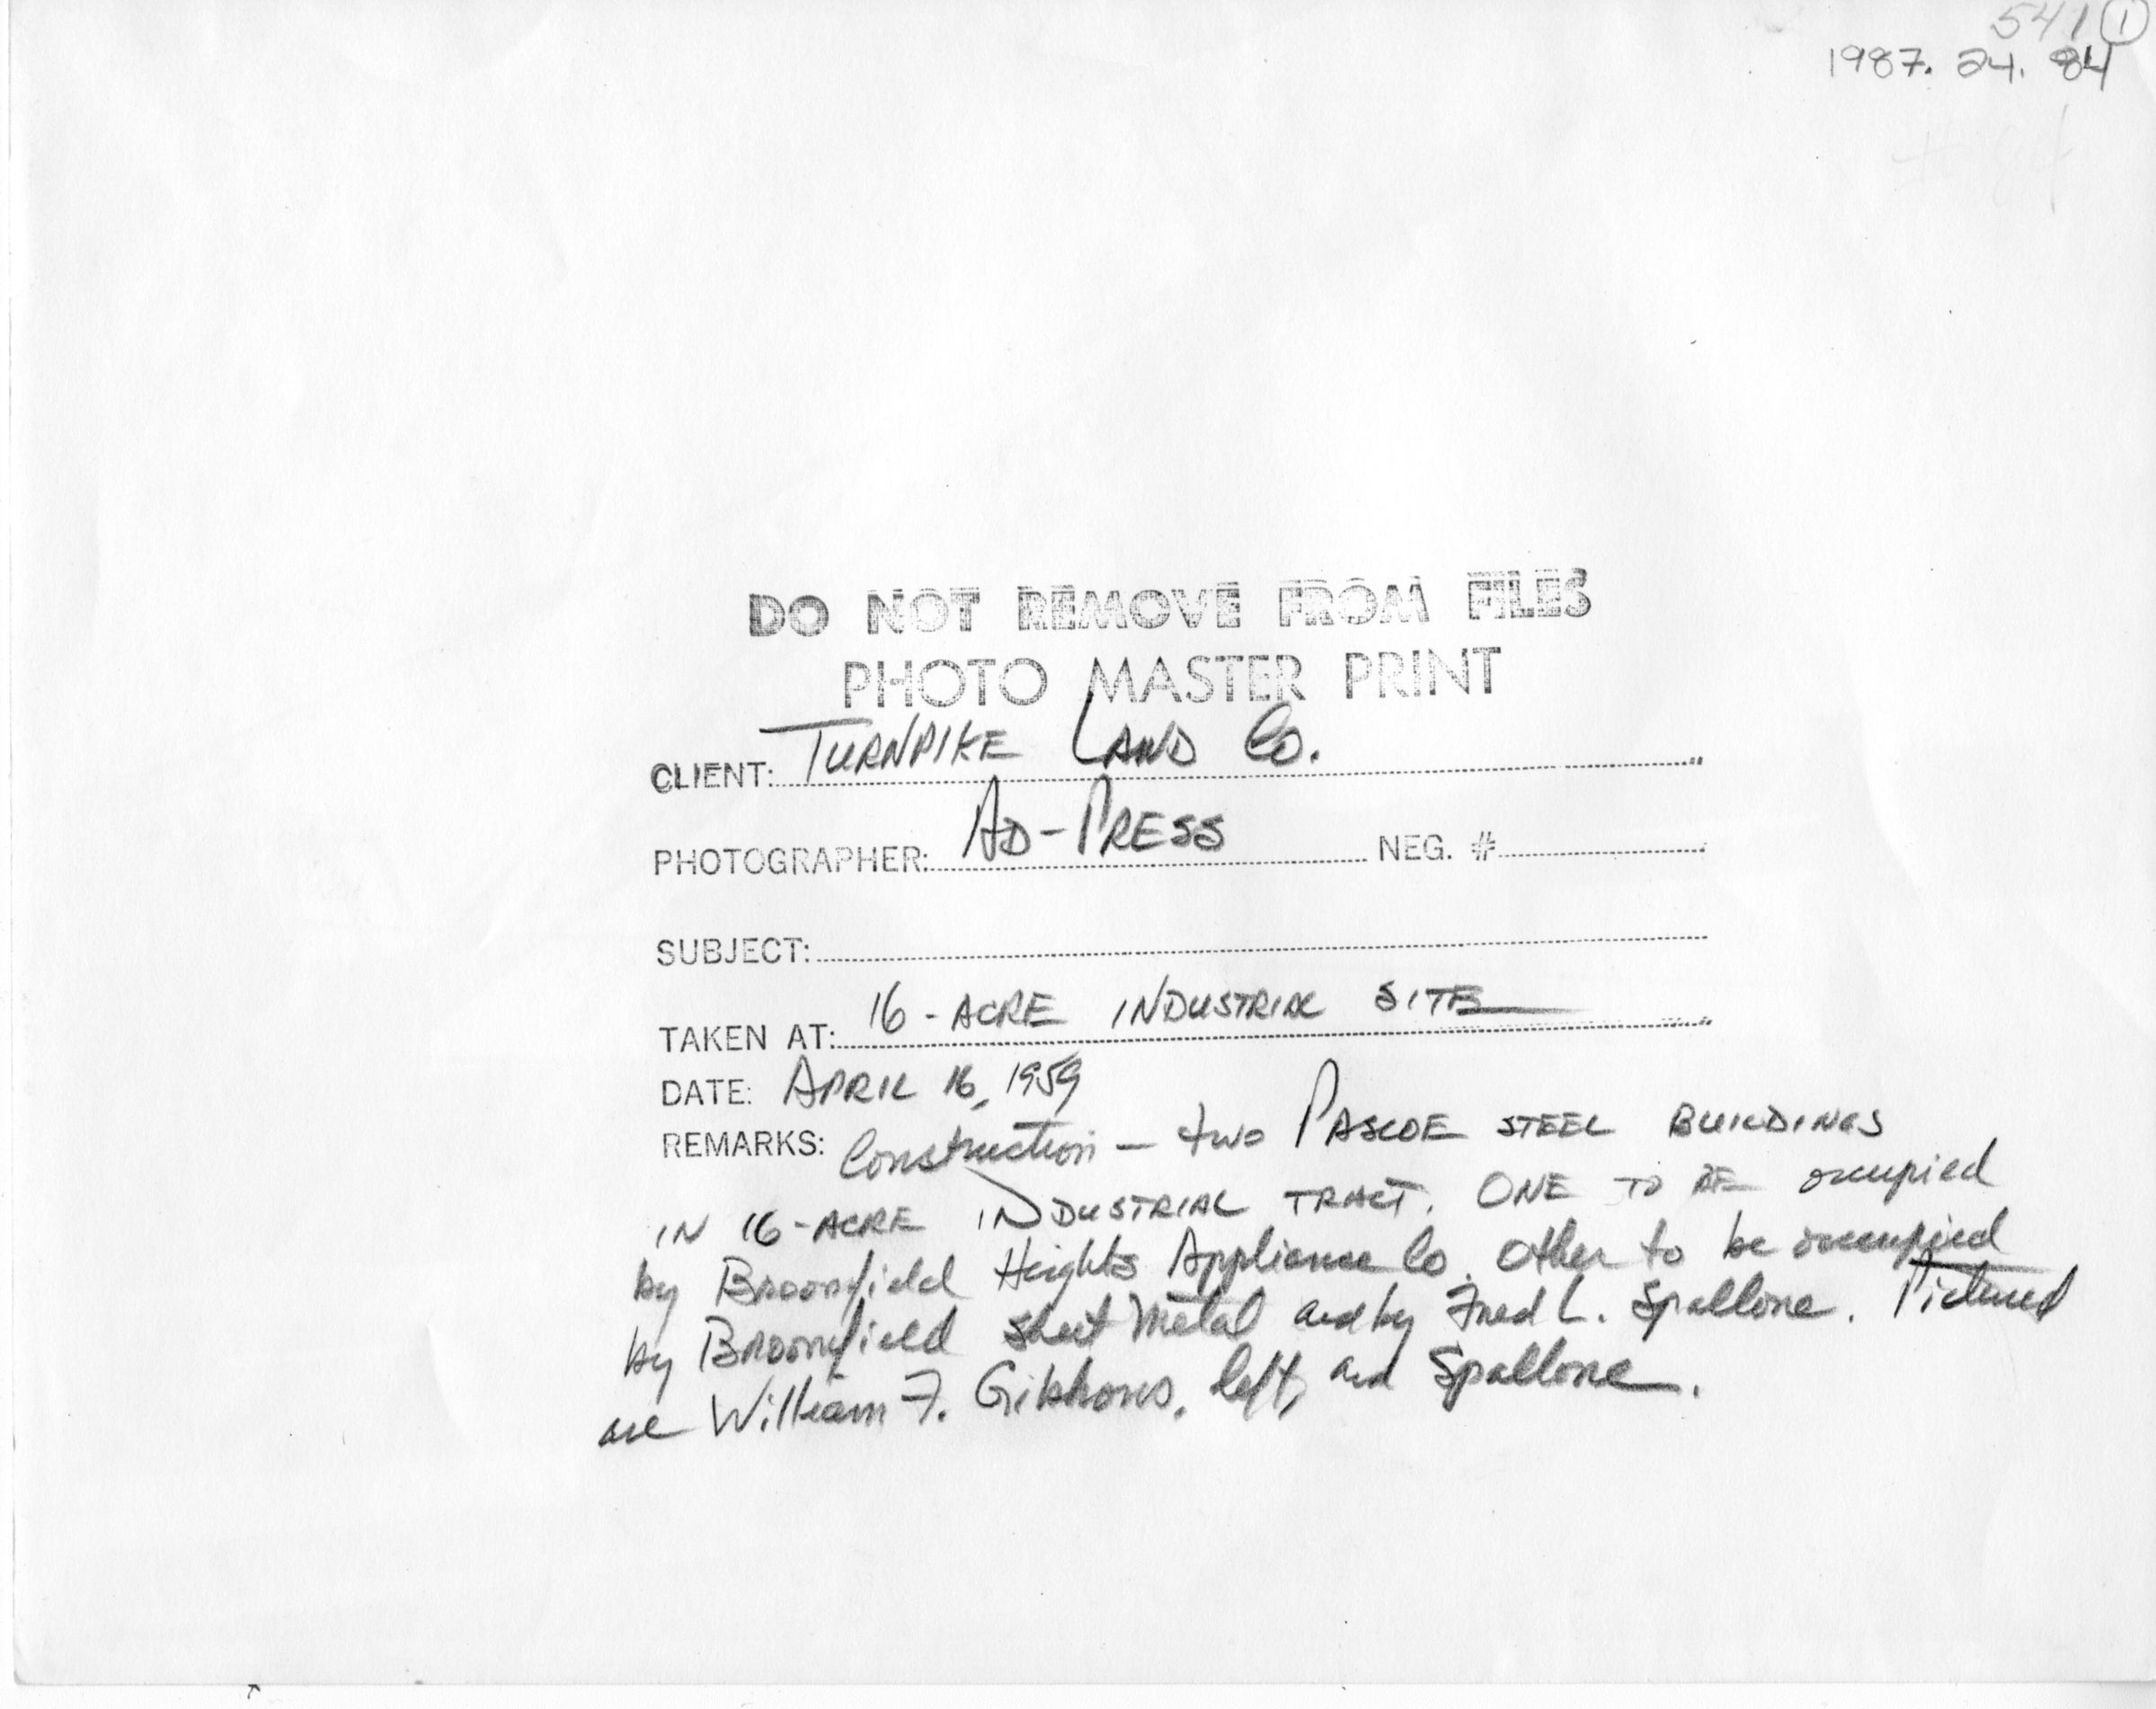 541 1
1987. 24. 84
DO NOT REMOVE FROM FILES
PHOTO MASTER PRINT
CLIENT: TURNPIKE LAND Co.
PHOTOGRAPHER: AD-PRESS NEG. #
SUBJECT:
TAKEN AT: 16-ACRE INDUSTRIAL SITE
DATE: APRIL 16, 1959
REMARKS: Construction – two PASCOE STEEL BUILDINGS
IN 16-ACRE INDUSTRIAL TRACT. ONE TO BE occupied
by Broomfield Heights Appliance Co. Other to be occupied
by Broomfield Sheet Metal and by Fred L. Spallone. Pictured
are William F. Gibbons, left, and Spallone.